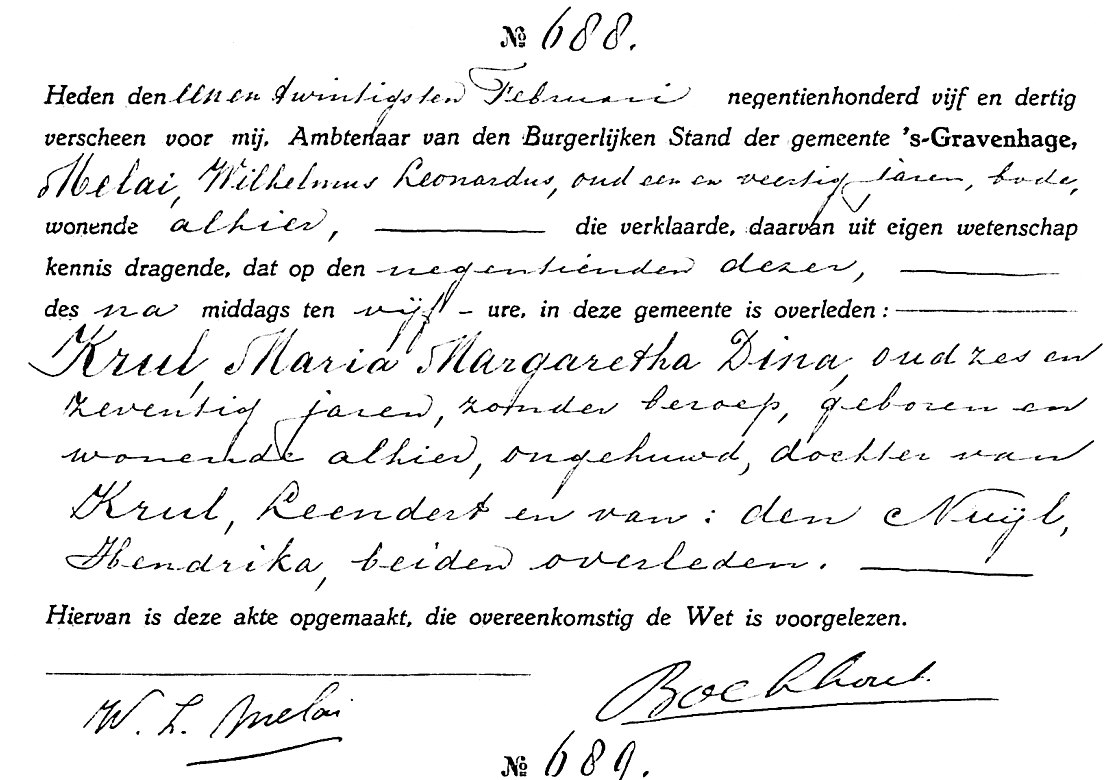 № 688.
Heden den een en twintigsten Februari negentienhonderd vijf en dertig
verscheen voor mij, Ambtenaar van den Burgerlijken Stand der gemeente 's-Gravenhage,
Melai, Wilhelmus Leonardus, oud een en veertig jaren, bode,
wonende alhier, die verklaarde, daarvan uit eigen wetenschap
kennis dragende, dat op den negentienden dezer,
des na middags ten vijf - ure, in deze gemeente is overleden:
Krul, Maria Margaretha Dina, oud zes en
zeventig jaren, zonder beroep, geboren en
wonende alhier, ongehuwd, dochter van
Krul, Leendert en van: den Nuijl,
Hendrika, beiden overleden.
Hiervan is deze akte opgemaakt, die overeenkomstig de Wet is voorgelezen.
W. L. Melai Boekhout
№ 689.